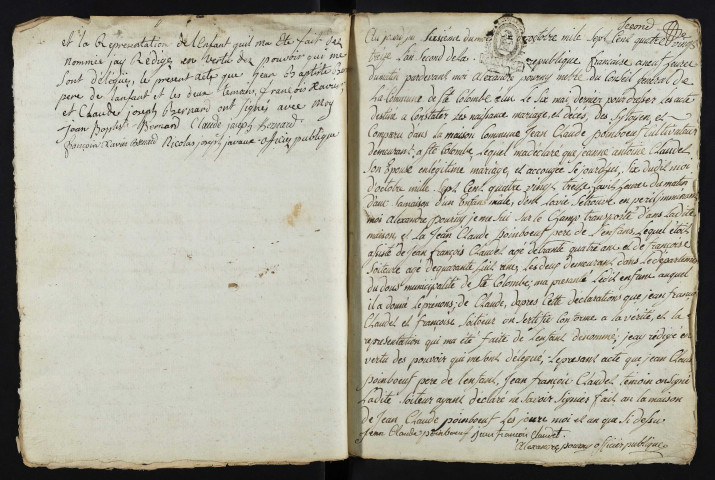 et la Representation de lEnfant quil ma Eté fait de
nommée jay Rédigé en vertu des pouvoir qui me
sont délégué, le présent acte que jean Baptiste
pere de lanfant et les deux temoins françois Xavier
et Claude joseph Bernard ont signés avec Moy
jean Baptiste Bernard Claude joseph Bernard
françois Xavier Bernard Nicolas joseph officier publique
Second
Aujourdhui Sixième du mois doctobre mile Sept Cent quatre vingt
treise lan Second de la republique francaise a neuf heures
du matin pardevant moi Alexandre pourny membre du Conseil general de
La Commune de Ste Colombe Elu le Six mai dernier pour dresser les acte
destiné a Constater les naissance mariage, et décès, des Citoyens, et
Comparu dans la maison Commune jean Claude poinboeuf Cultivateur
demeurant a Ste Colombe, lequel ma déclaré que jeanne antoine Claudet
Son Epouse en legitime mariage, et accouçée Cejourdhui, Six dudit moi
doctobre mille Sept Cent quatre vingt treise, a huit heure du matin
dans Sa maison dun Enfant male, dont la vie Setrouve en peril imminant
moi Alexandre pourny je me Suis Sur le Champ transporté dans ladite
maison, et la jean Claude poinboeuf pere de lenfant, lequel étoit
asisté de jean françois Claudet agé de trante quatre ans et de françoise
Soiteur agé de quarante huit ans, les deux demeurant dans le departement
du doubs municipalité de Ste Colombe, ma presanté ledit enfant auquel
il a donné le prenons, de Claude, dapres Cette déclarations que jean françois
Claudet et françoise Soiteur on Sertifié Conforme a la verité, et la
representation qui ma eté faite de lenfant denommé, jeay rédigé en
vertu des pouvoir qui me sont delegué, le present acte que jean Claude
poinboeuf pere de lenfant, jean françois Claudet temoin on Signé
Ladite Soiteur ayant déclaré ne Savoir Signer fait an la maison
de jean Claude poinboeuf les joure moi et an que Si desu
jean Claude poinboeuf jean francois Claudet
Alexandre pourny officier publique